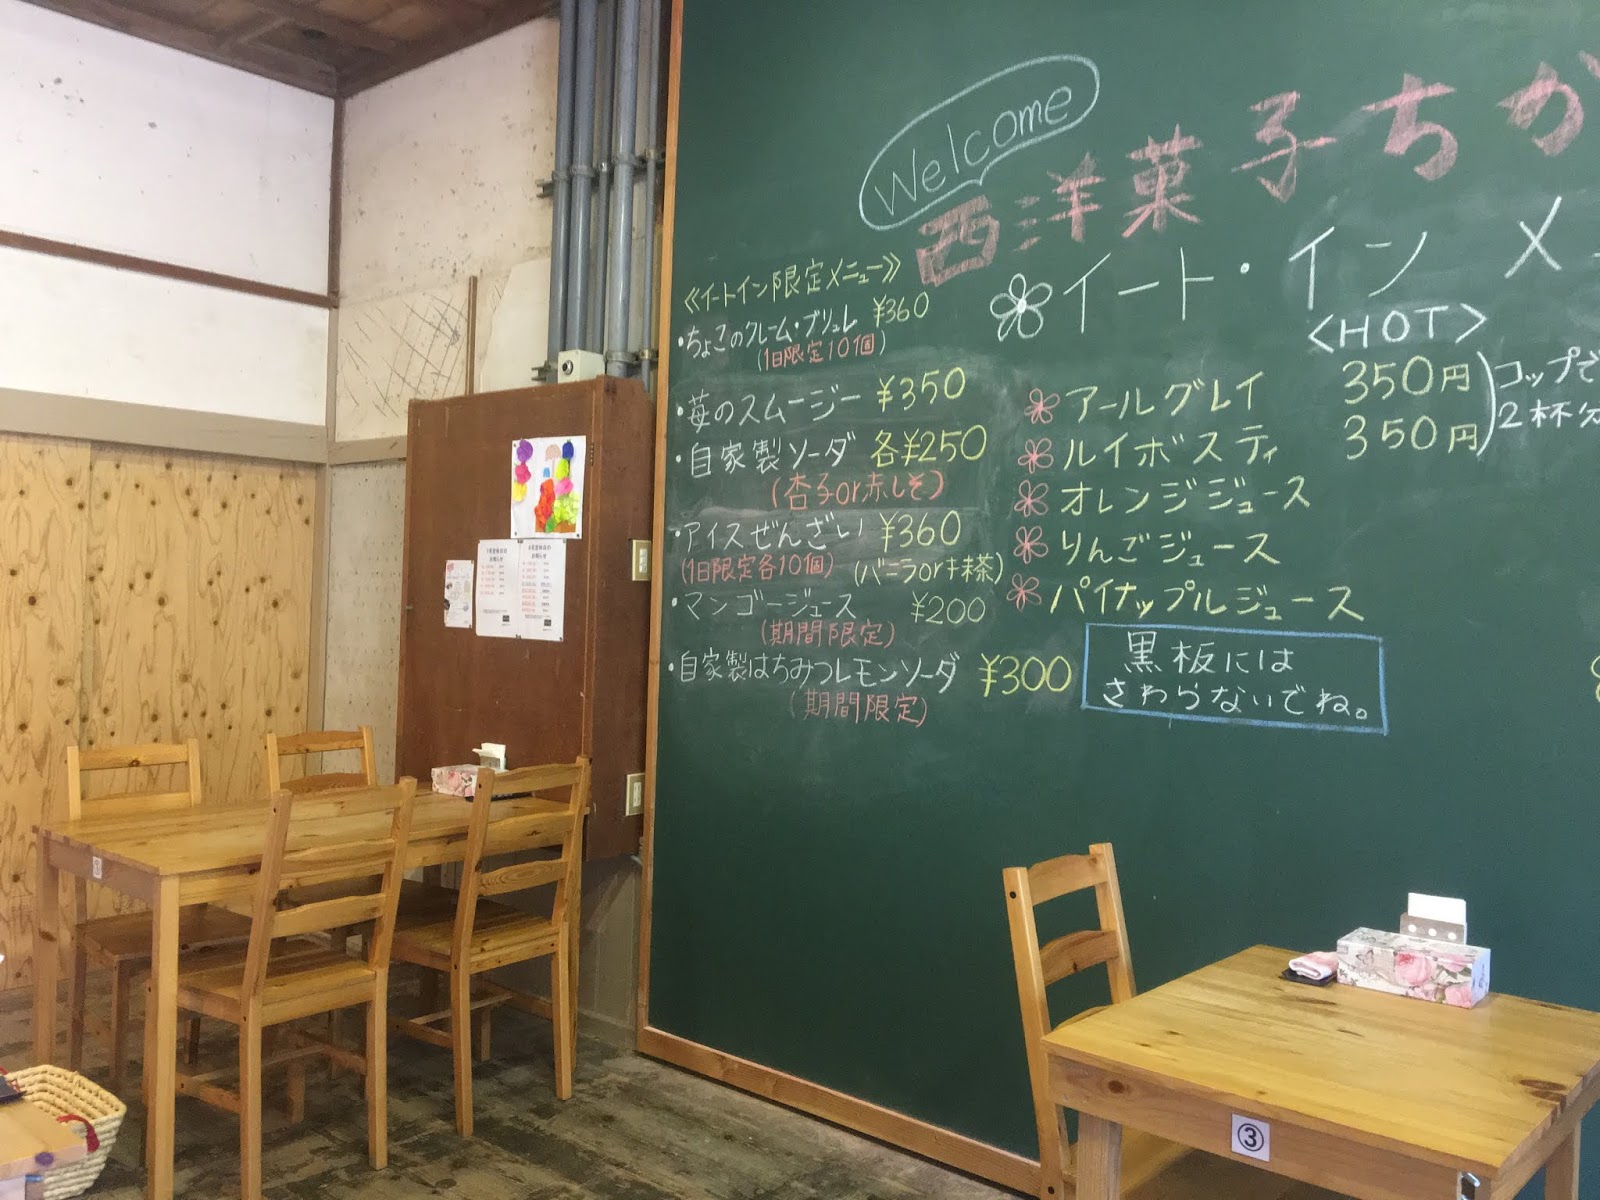 Welcome
西洋菓子ちか
イート・イン メ
《イートイン限定メニュー》
・ちょこのクレーム・ブリュレ ¥360
(1日限定10個)
・苺のスムージー ¥350
・自家製ソーダ 各¥250
(杏子or赤しそ)
・アイスぜんざい ¥360
(1日限定各10個) (バニラor抹茶)
・マンゴージュース ¥200
(期間限定)
・自家製はちみつレモンソーダ ¥300
(期間限定)
<HOT>
アールグレイ 350円
ルイボスティ 350円
コップで
2杯分
オレンジジュース
りんごジュース
パイナップルジュース
黒板には
さわらないでね。
①
③